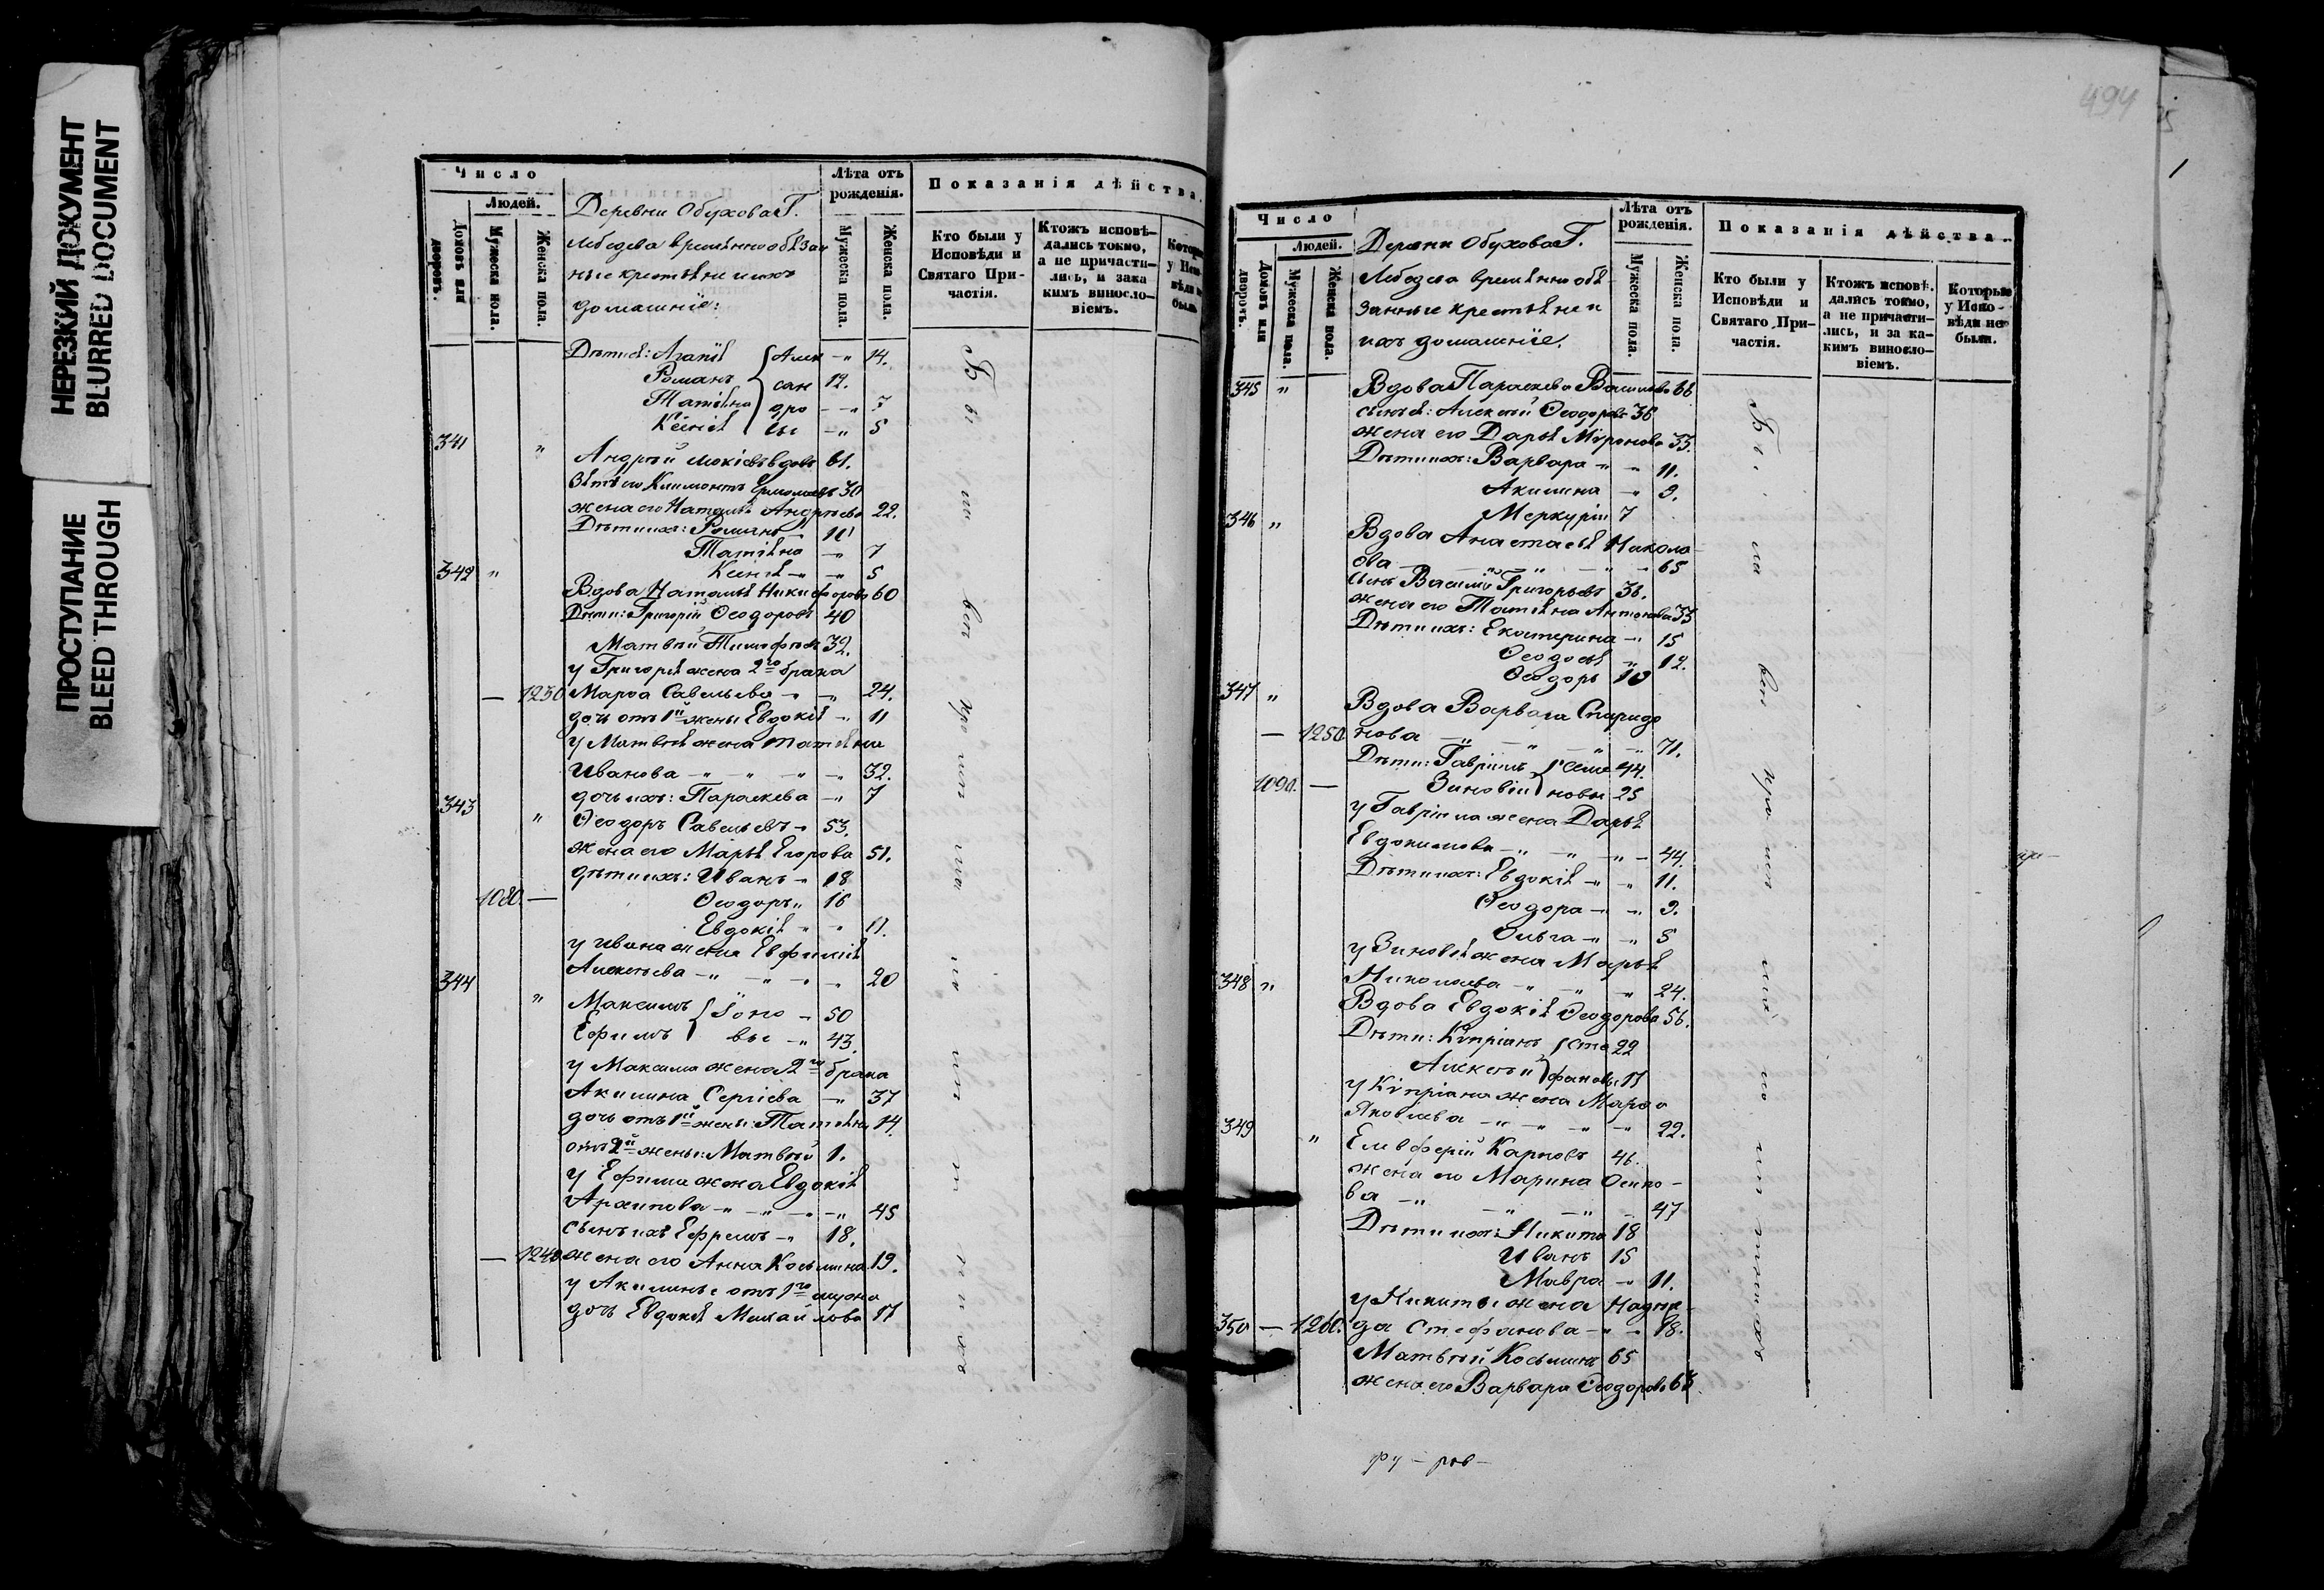 НЕРЕЗКИЙ ДОКУМЕНТ
BLURRED DOCUMENT
ПРОСТУПАНИЕ
BLEED THROUGH
Число
Людей.
Домовъ или дворовъ.
Мужеска пола.
Женска пола.
Деревни Обухова Г.
Лебедева временно обязан
ные крестьяне и ихъ
домашніе:
Лѣта отъ рожденія.
Мужеска пола.
Женска пола.
Показанія дѣйства.
Кто были у Исповѣди и Святаго Причастія.
Ктожъ исповѣ-
дались токмо,
а не причасти-
лись, и зака
кимъ виносло-
віемъ.
Дѣтися: Агапія { Алек -„ 14.
Романъ сан 12.
Татіяна дро -„ 7
Ксенія вы -„ 5
341 „ Андрей Мокіевъ вдовъ 61.
Зять его Климонтъ Ермолаевъ 30
жена его Наталья Андреева 22.
Дѣти ихъ: Романъ 10
Татіяна -„ 7
Ксенія -„ -„ 5
342 „ Вдова Наталья Никифорова 60
Дѣти: Григорій Ѳеодоровъ 40
Матвѣй Тимофѣевъ 32.
у Григорія жена 2го брака
— 1230 Марѳа Савельева -„ -„ 24.
дочь отъ 1й жены Евдокія -„ 11
у Матвѣя жена Татіяна
Иванова -„ -„ -„ -„ 32.
дочь ихъ: Параскева -„ 7
343 „ Ѳеодоръ Савельевъ -„ 53.
жена его Марья Егорова 51.
дѣти ихъ: Иванъ -„ 18
1080. — Ѳеодоръ „ 16
Евдокія -„ -„ 11.
у Ивана жена Евфимія
Алексѣева -„ -„ -„ -„ 20
344 „ Максимъ { Іоно -„ 50
Ефимъ вы -„ 43.
у Максима жена 2го брака
Акилина Сергіева -„ 37
дочь отъ 1й жены: Татіяна 14.
отъ 2й жены: Матвѣй 1.
у Ефима жена Евдокія
Архипова -„ -„ -„ -„ 45
сынъ ихъ Ефремъ -„ 18.
— 1240 жена его Анна Космина 19.
у Акилины отъ 1го мужа
дочь Евдокія Михайлова 17
494
Число
Людей.
Домовъ или дворовъ.
Мужеска пола.
Женска пола.
Деревни Обухова Г.
Лебедева временно обя-
занные крестьяне и
ихъ домашніе.
Лѣта отъ рожденія.
Мужеска пола.
Женска пола.
Показанія дѣйства.
Кто были у Исповѣди и Святаго Причастія.
Ктожъ исповѣ-
дались токмо,
а не причасти-
лись, и за ка-
кимъ винosло-
віемъ.
Которые
у Испо-
вѣди не
были.
345 „ Вдова Параскева Васильева 66
сынъ ея: Алексѣй Ѳеодоровъ 36
жена его Дарья Миронова 33.
Дѣти ихъ: Варвара -„ -„ 11.
Акилина -„ 9.
Меркурій 7
346 „ Вдова Анастасья Никола-
ова -„ -„ -„ 65
сынъ Василій Григорьевъ 36.
жена его Татіяна Антонова 33
Дѣти ихъ: Екатерина -„ 15
Ѳеодосья -„ 12.
Ѳеодоръ 10
347 „ Вдова Варвара Спиридо
— 1250. нова -„ -„ -„ -„ 71.
Дѣти: Гавріилъ { Семе 44.
1090. — Зиновій новы 25
у Гавріила жена Дарья
Евдокимова -„ -„ -„ - 44.
Дѣти ихъ: Евдокія -„ -„ 11.
Ѳеодора -„ -„ 9.
Ольга -„ -„ 5
у Зиновья жена Марья
348 „ Николаева -„ -„ -„ 24.
Вдова Евдокія Ѳеодорова 56.
Дѣти: Кипріанъ { Сте 22
Алексѣй фановы 17
у Кипріана жена Марѳа
Яковлева -„ -„ -„ -„ 22.
349 „ Елевферій Карповъ 46.
жена его Марина Осипо-
ва -„ -„ -„ - 47
Дѣти ихъ: Никита 18
Иванъ 15
Мавра -„ 11.
у Никиты жена Надеж-
350 — 1260. да Стефанова -„ -„ 18.
Матвѣй Космин 65
жена его Варвара Ѳеодорова 63